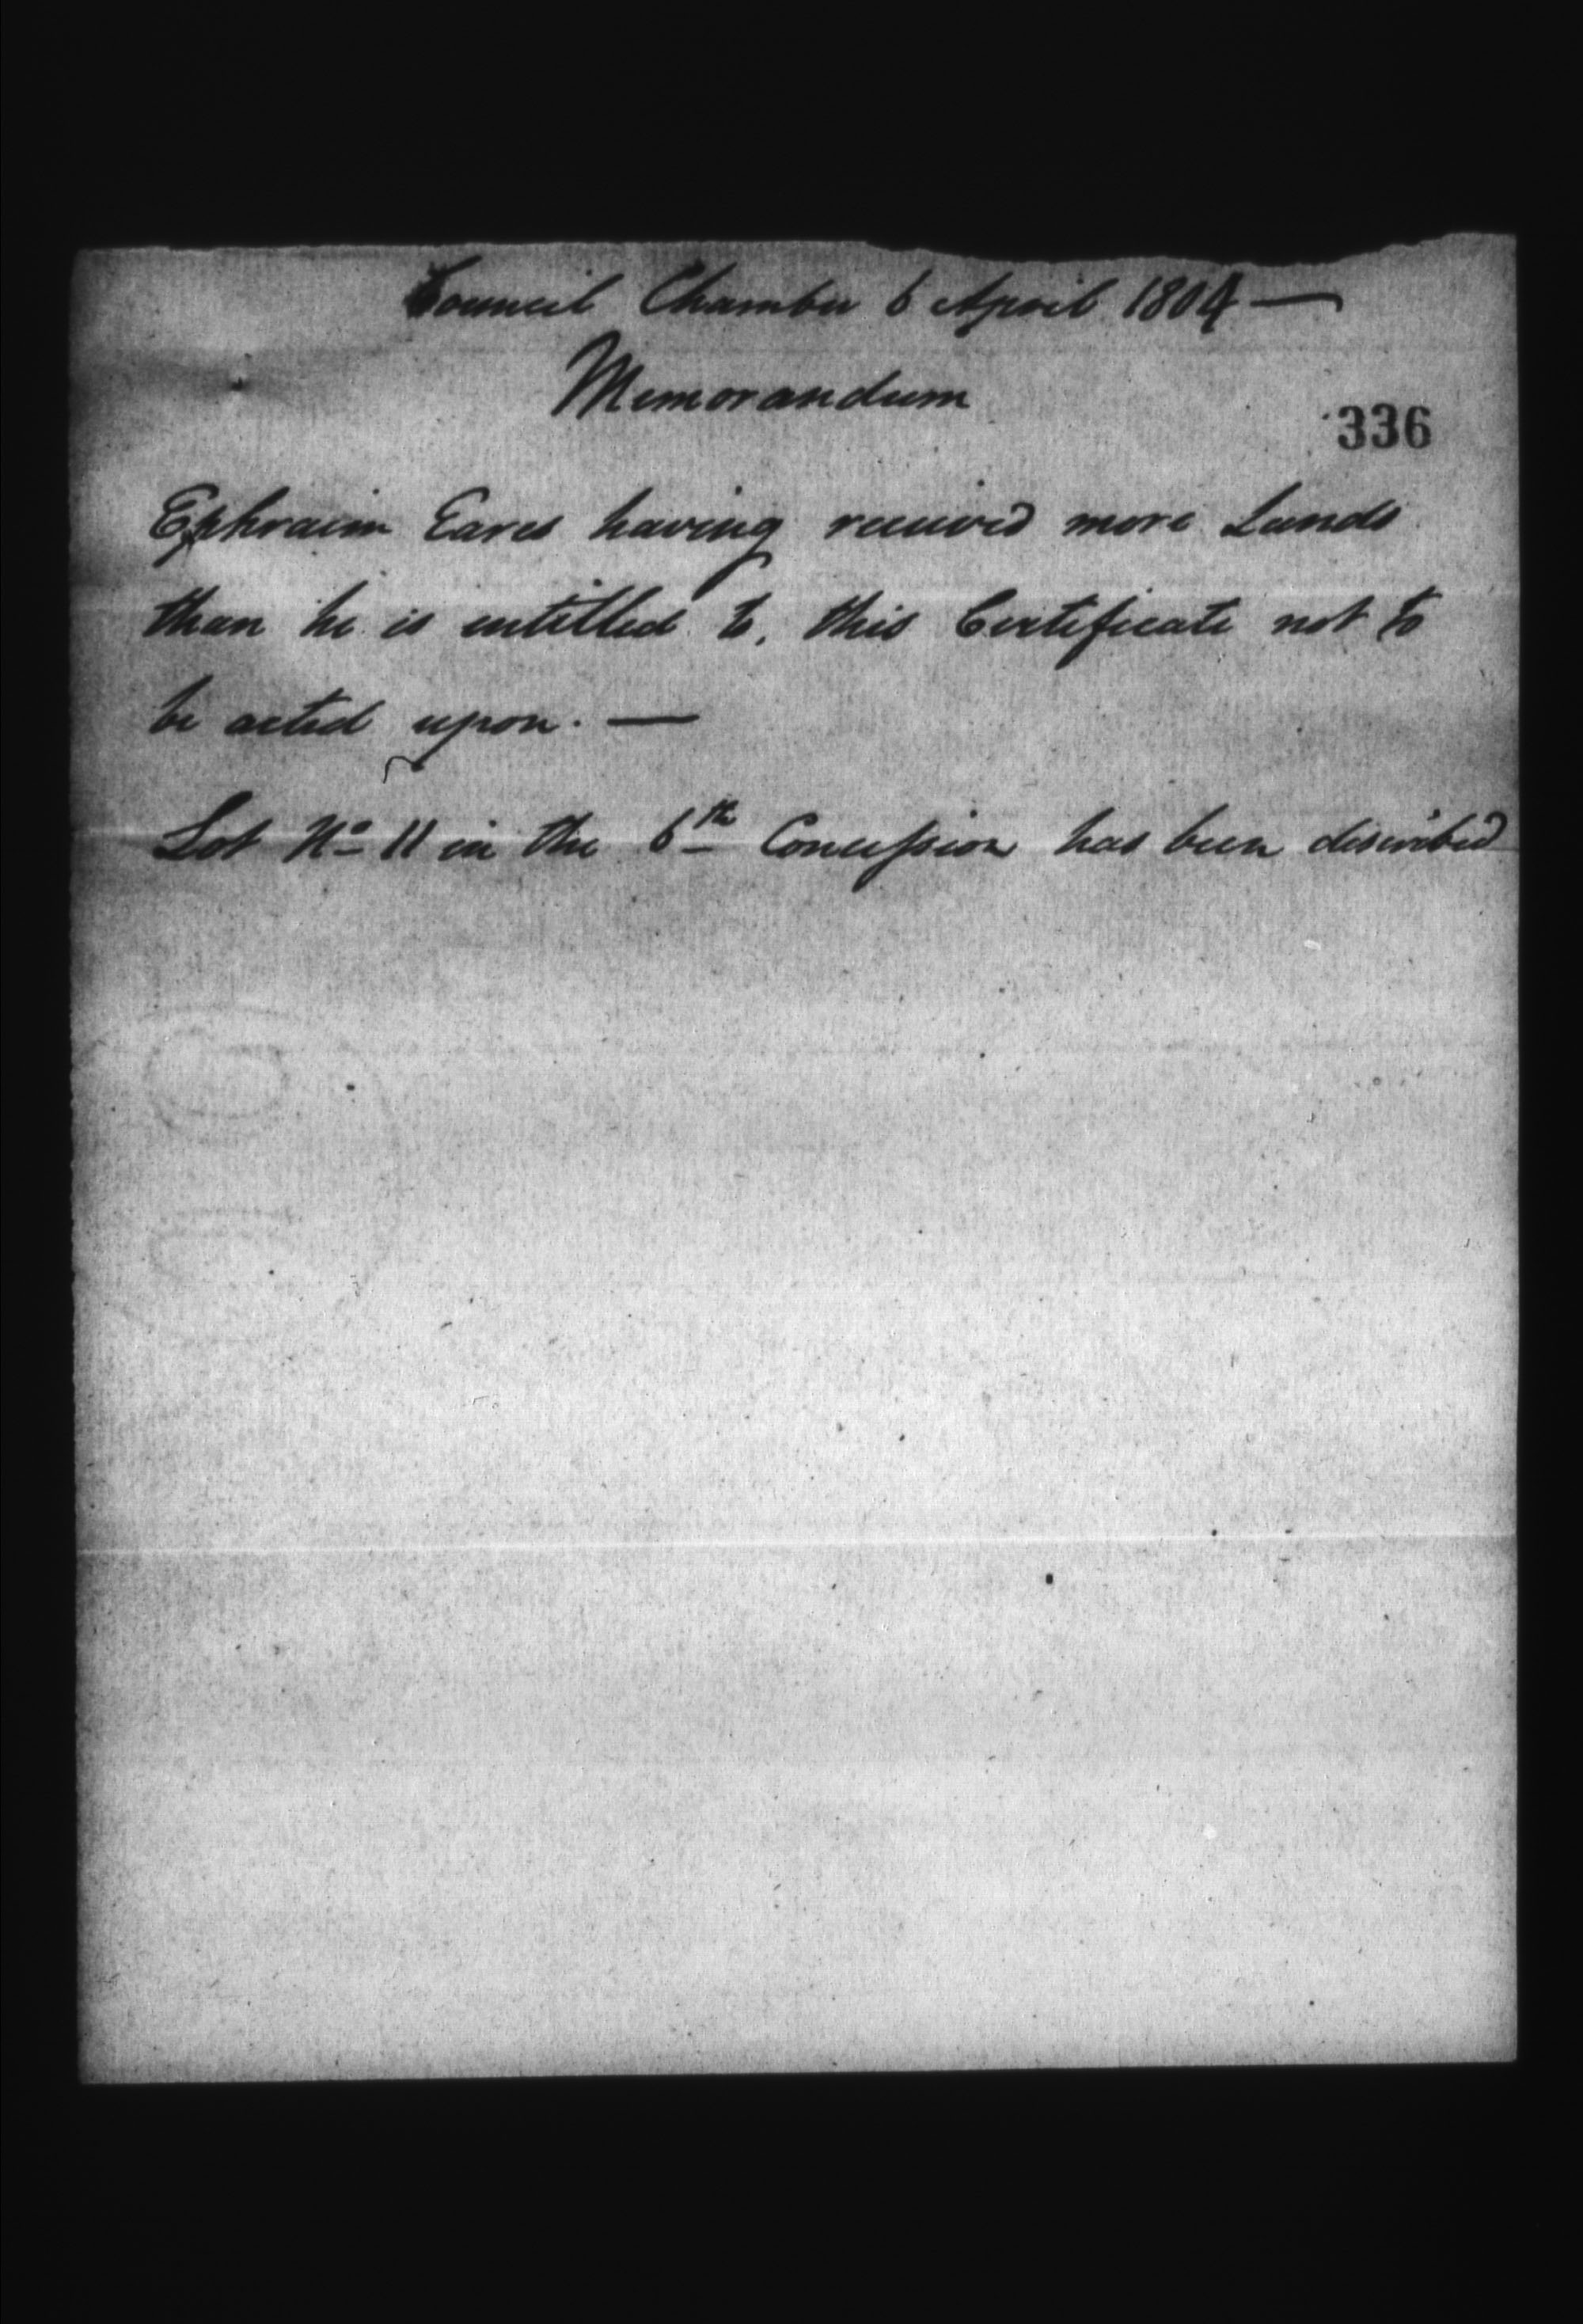 Council Chamber 6 April 1804 —
Memorandum
336
Ephraim Eares having received more Lands
than he is entitled to, this Certificate not to
be acted upon. —
Lot No 11 in the 6th Concession has been described